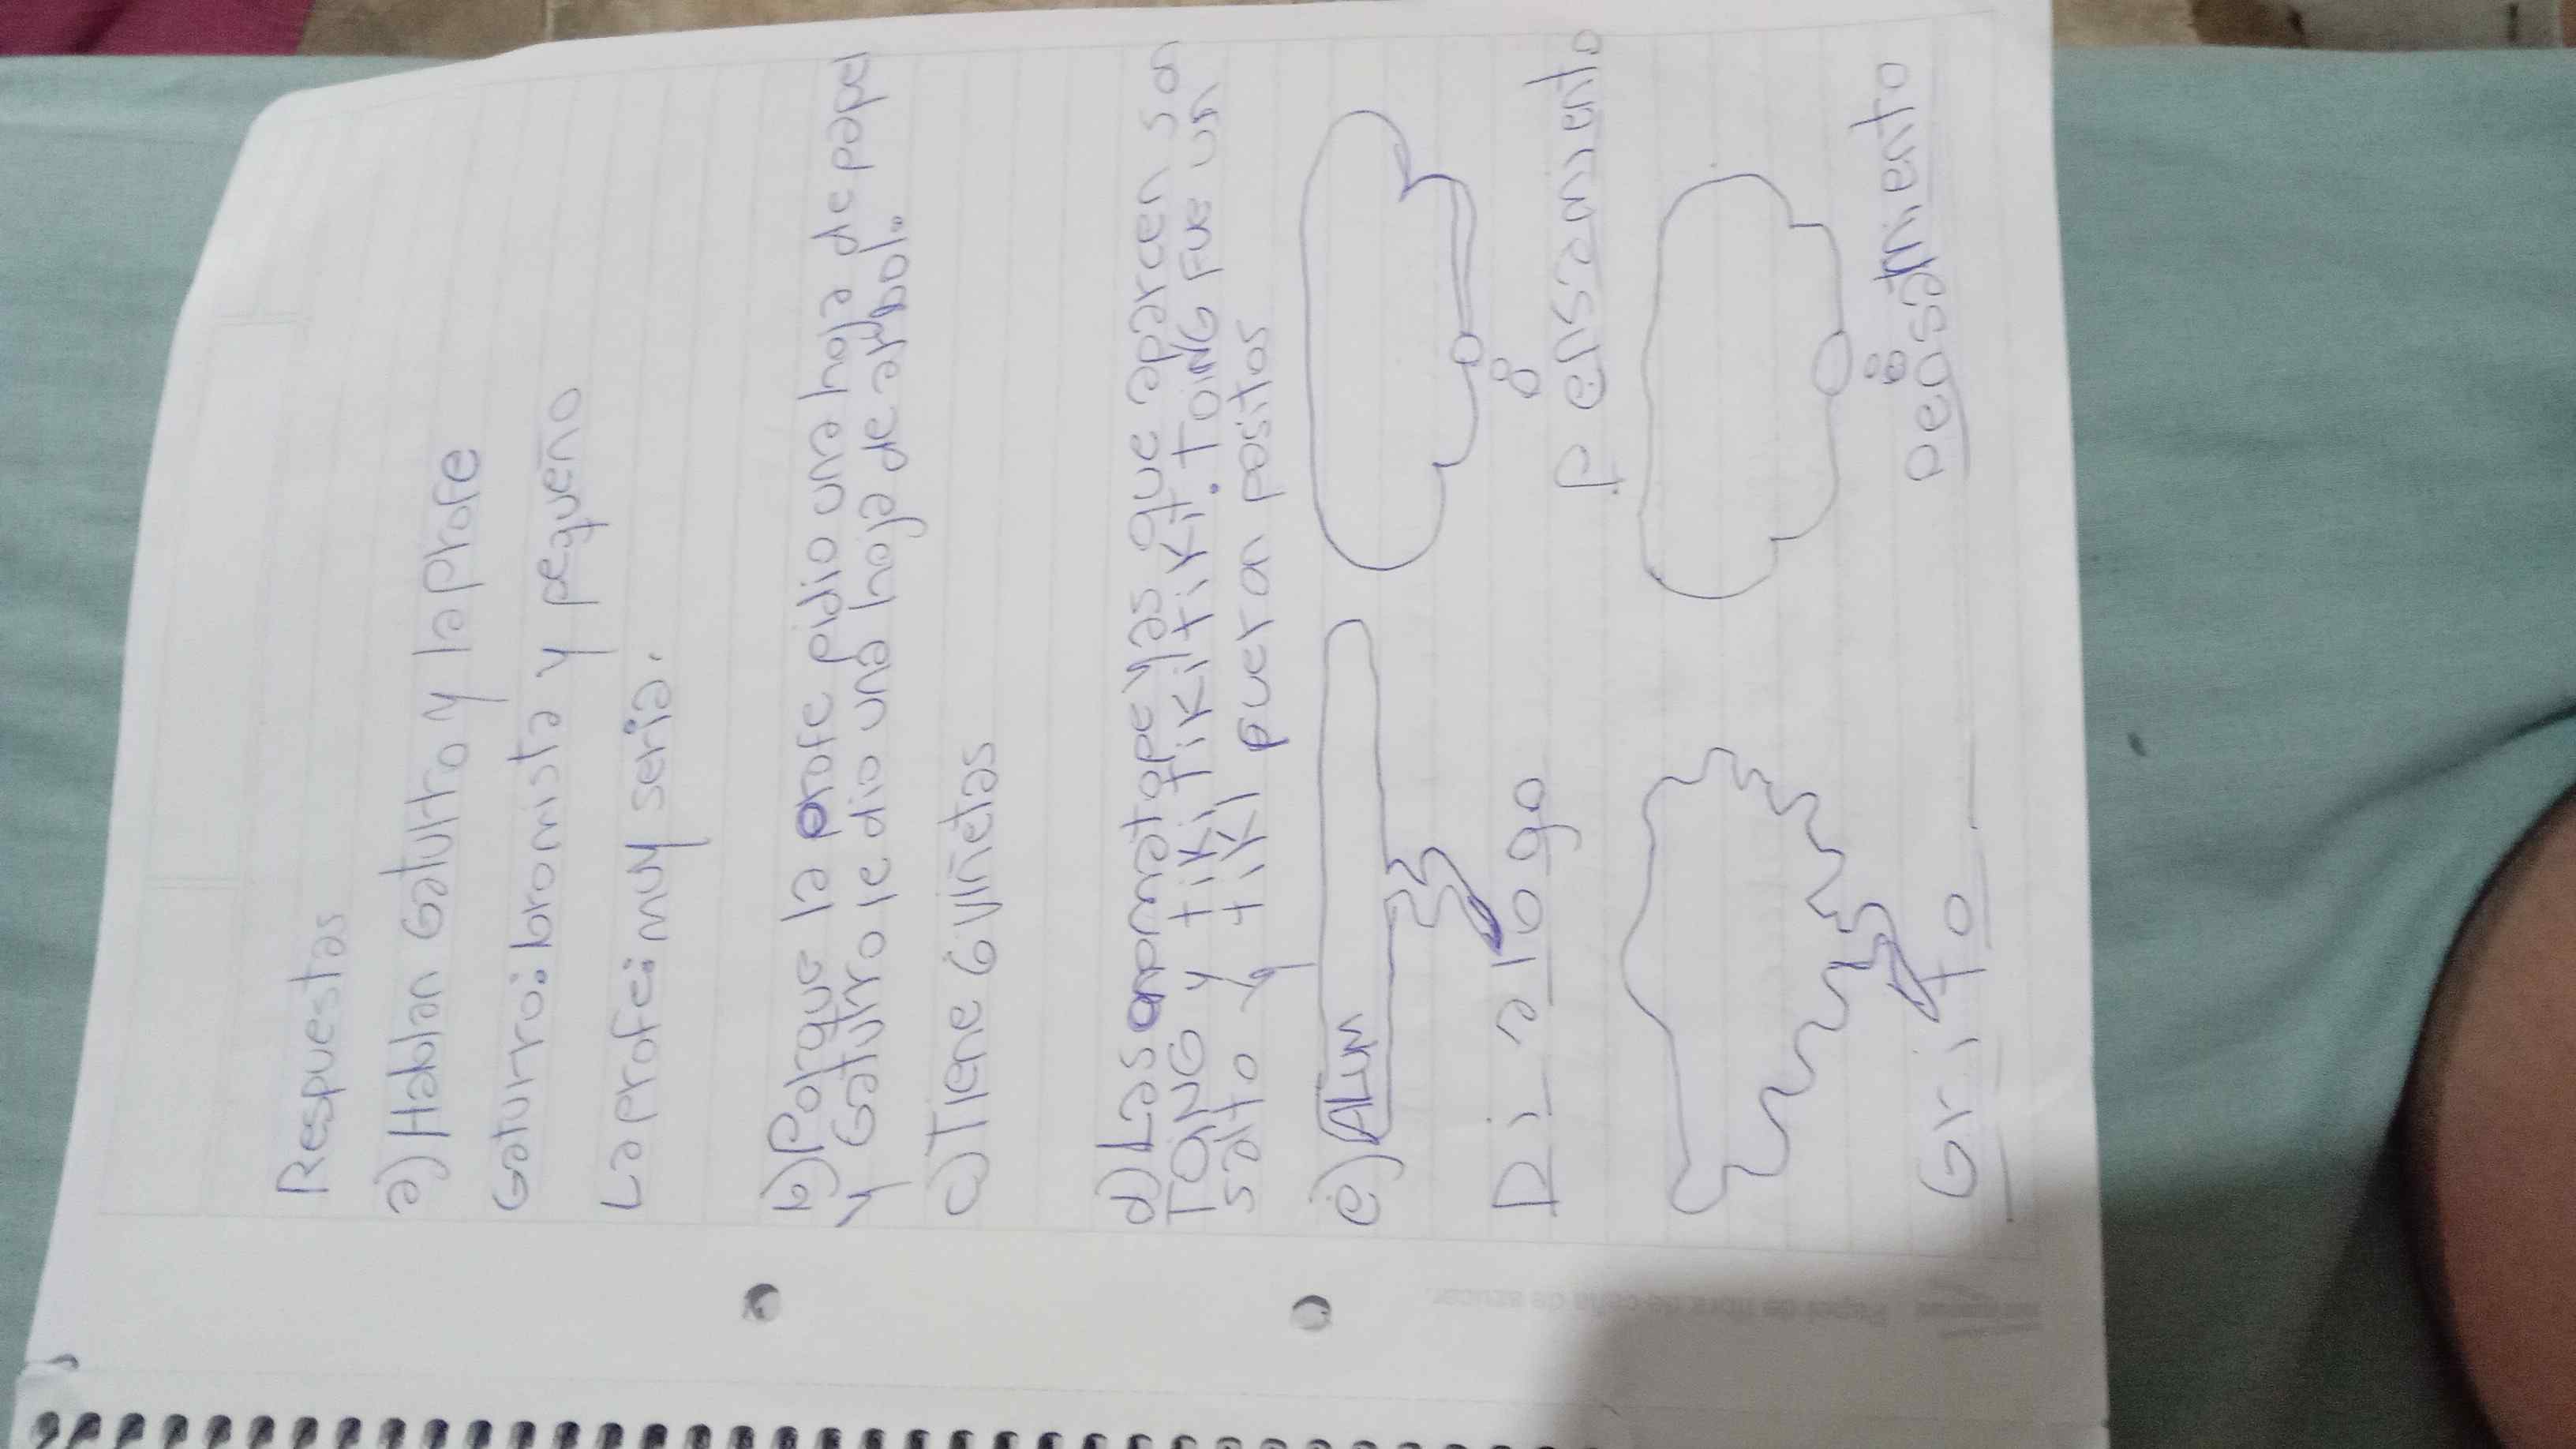 Respuestas
a) Hablan Gaturro y la profe
Gaturro: bromista y pequeño
La profe: muy seria.
b) Porque la profe pidio una hoja de papel
y Gaturro le dio una hoja de arbol.
c) Tiene 6 viñetas
d) Las onomatopeyas que aparcen son
TOING y tiki tikitikit. TOING FUE un
salto y tiki pueran pasitos
e) ALUM
Dialogo
pensamiento
Grito
pensamiento
Papel de fibra de caña de azúcar.